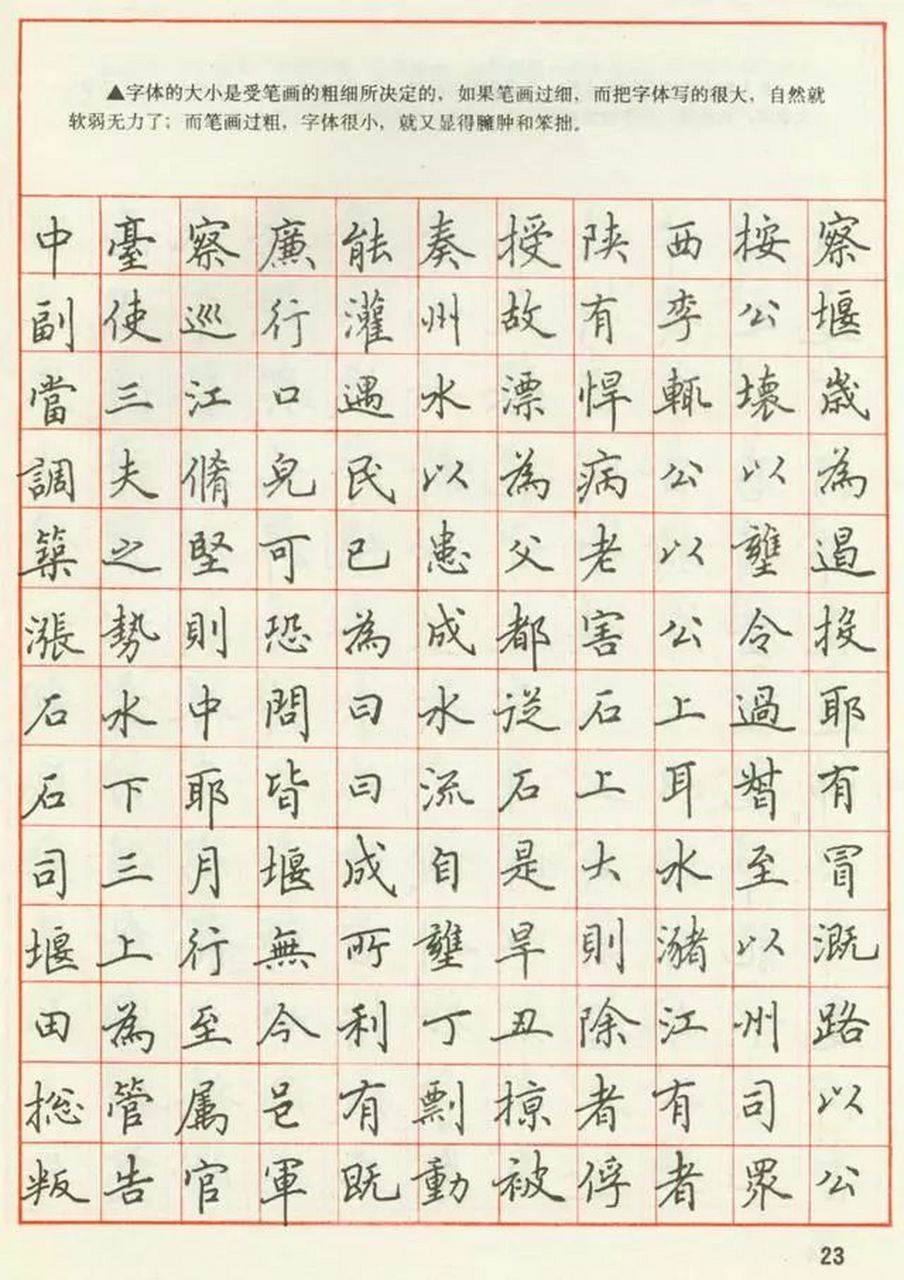 ▲字体的大小是受笔画的粗细所决定的，如果笔画过细，而把字体写的很大，自然就
软弱无力了；而笔画过粗，字体很小，就又显得臃肿和笨拙。
中臺察廉能奏授陕西按察
副使巡行灌州故有李公堰
當三江口遇水漂悍輒壞歳
調夫脩皃民以為病公以為
築之堅可已患父老以壅遏
漲勢則恐為成都害公令投
石水中問曰水從石上過耶
石下耶皆曰流石上耳暬有
司三月堰成自是大水至冒
堰上行無所壅旱則瀦以溉
田為至今利丁丑除江州路
揔管属邑有剽掠者有司以
叛告官軍既動被俘者眾公
23